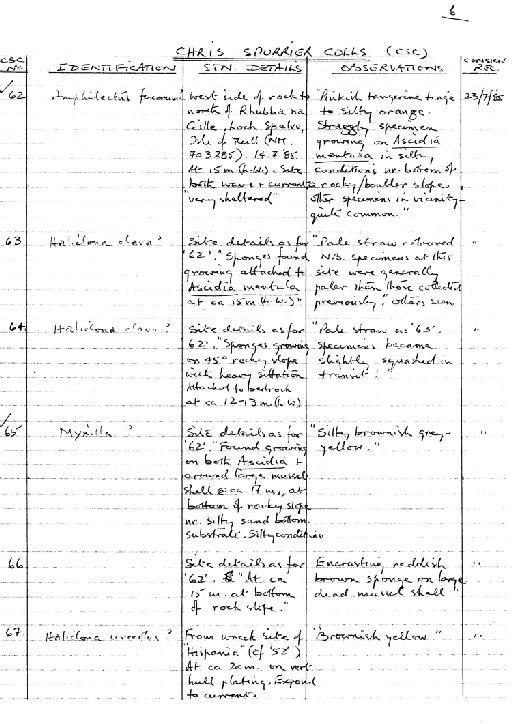 6
CHRIS SPURRIER COLLS (CSC)
CSC NO. IDENTIFICATION STN. DETAILS OBSERVATIONS REC.
62 Amphilectus fucorum west side of rock to "Pinkish tangerine tinge 23/7/85
north of Rhubba na to silty orange.
Gille, Loch Spelve, Straggly specimen
Isle of Mull (NM growing on Ascidia
703285). 14.7.85 mentula in silty
At 15m (l.w.). Site conditions nr. bottom of
both wave + current rocky/boulder slope.
"very sheltered" other specimens in vicinity-
quite common."
63 Haliclona clava? Site details as for "Pale straw coloured "
'62'. "Sponges found N.B. specimens at this
growing attached to site were generally
Ascidia mentula paler than those collected
at ca 15m (l.w.)" previously." others seen
64 Haliclona clava? Site details as for "Pale straw as '63'. "
'62'. "Sponges growing specimens became
on 45° rocky slope slightly squashed in
with heavy siltation transit!"
Attached to bedrock
at ca 12-13m (l.w)
65 Myxilla ? Site details as for "Silty brownish grey- "
'62'. "Found growing yellow."
on both Ascidia +
around large mussel
shell @ ca 17m, at
bottom of rocky slope
nr. silty sand bottom
substrate. Silty condition
66 Site details as for Encrusting reddish "
'62'. "At ca brown sponge on large
15m at bottom dead mussel shell"
of rock slope."
67 Haliclona urceolus? From wreck site of "Brownish yellow." "
"Hispania" (cf '52')
At ca 20m. on vert
hull plating. Exposed
to current.